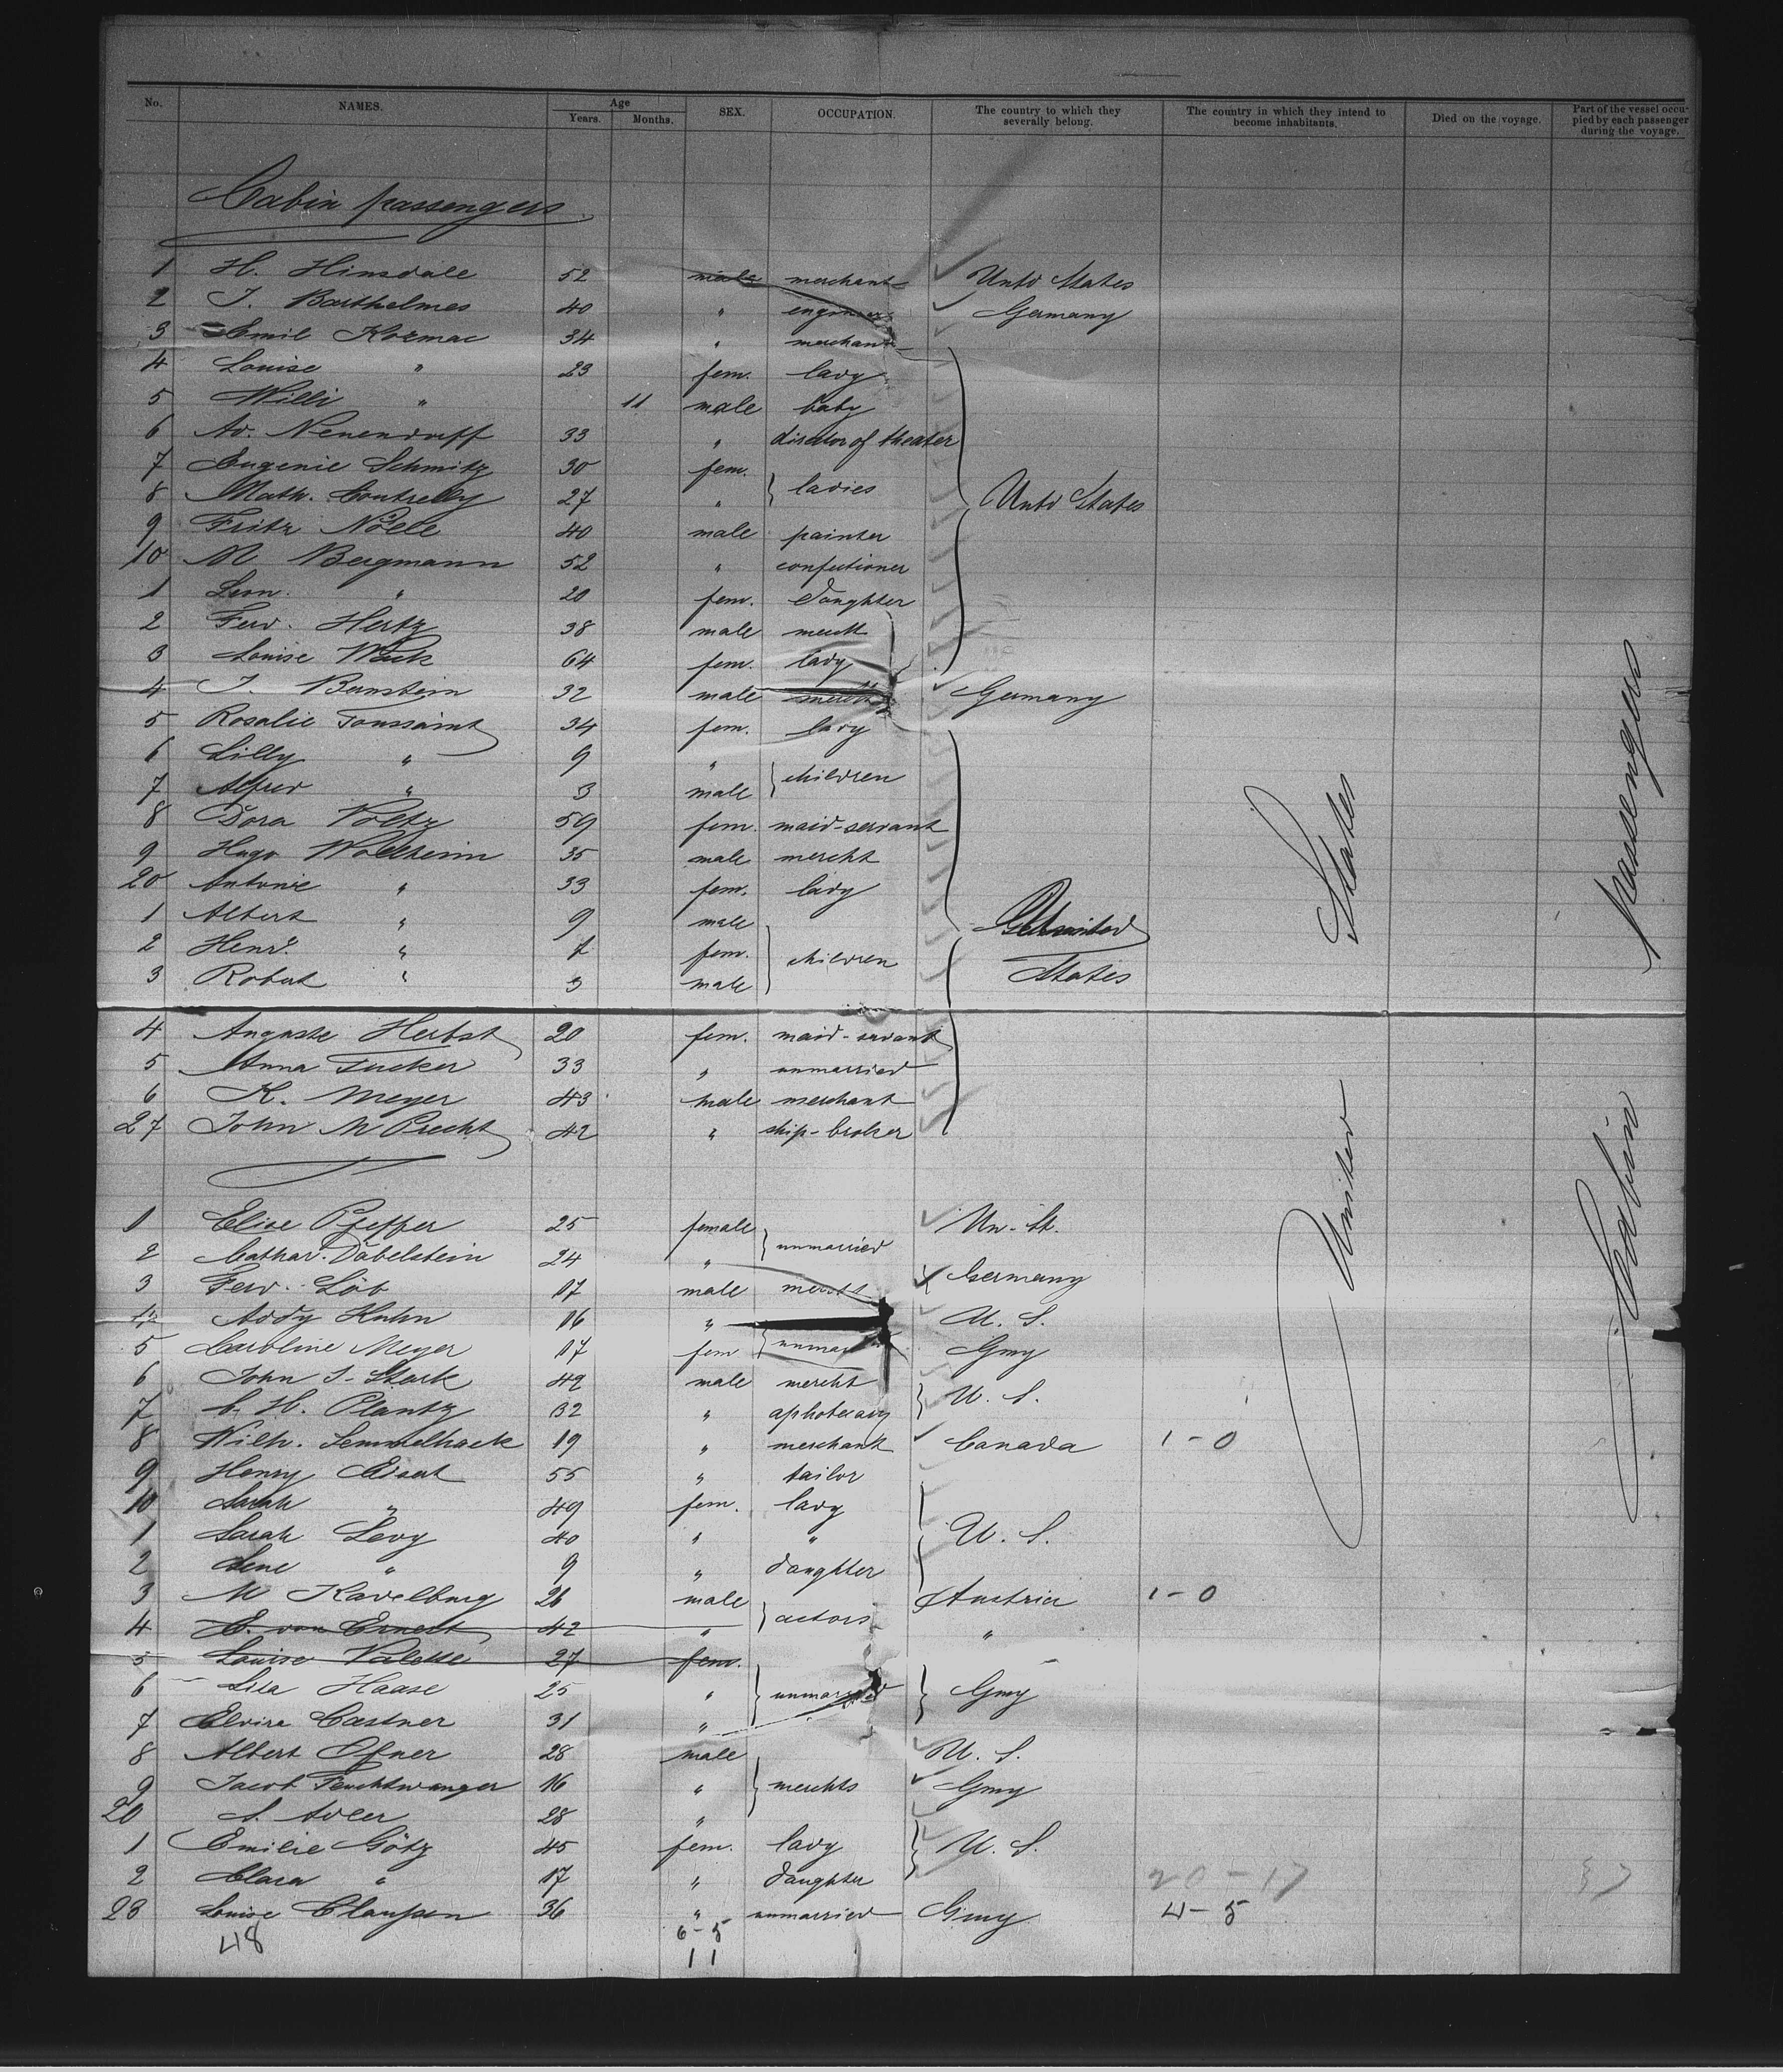 No. NAMES. Age Years. Months. SEX. OCCUPATION. The country to which they severally belong. The country in which they intend to become inhabitants. Died on the voyage. Part of the vessel occupied by each passenger during the voyage.
Cabin passengers
1 H. Hinsdale 52 male merchant Untd States
2 J. Barthelmes 40 " engineer Germany
3 Emil Kozmac 34 " merchant
4 Louise " 23 fem. lady
5 Willi " 11 male baby
6 Ad. Neuendorff 33 " director of theater
7 Eugenie Schmitz 30 fem.
8 Math. Cottrelly 27 " } ladies Untd States
9 Fritz Nölle 40 male painter
10 M Bergmann 52 " confectioner
1 Leon. " 20 fem. daughter
2 Ferd. Hertz 38 male mercht
3 Louise Wack 64 fem. lady
4 J. Bernstein 32 male mercht Germany
5 Rosalie Toussaint 34 fem. lady
6 Lilly " 9 "
7 Alfred " 3 male } children
8 Dora Voltz 59 fem. maid-servant
9 Hugo Wollheim 35 male mercht
20 Antonie " 33 fem. lady
1 Albert " 9 male United
2 Henr. " 7 fem. } children
3 Robert " 3 male States
4 Auguste Herbst 20 fem. maid-servant
5 Anna Tucker 33 " unmarried
6 K. Meyer 43 male merchant
27 John M Precht 42 " ship-broker
1 Elise Pfeffer 25 female Un. St.
2 Cathar. Dabelstein 24 " } unmarried
3 Ferd. Löb 17 male mercht Germany
4 Addy Kuhn 16 " U. S.
5 Caroline Meyer 17 fem Gmy
6 John J. Stark 42 male mercht
7 C. H. Plantz 32 " aphotecary } U. S.
8 Wilh. Semmelhack 19 " merchant Canada 1-0
9 Henry Eisert 55 " tailor
10 Sarah " 49 fem. lady
1 Sarah Levy 40 " " U. S.
2 Lene " 9 " daughter
3 M Kadelburg 26 male Austria 1-0
4 C. von Ernest 42 " } actors "
5 Louise Valesse 27 fem.
6 Lila Haase 25 " } unmarried } Gmy
7 Elvira Castner 31 "
8 Albert Ofner 28 male U. S.
9 Jacob Feuchtwanger 16 " } merchts Gmy
20 S. Adler 28 "
1 Emilie Götz 45 fem. lady } U. S.
2 Clara " 17 " daughter 20-17
23 Louise Claussen 36 " unmarried Gmy 4-5
48 6-5
11
United States
Cabin passengers